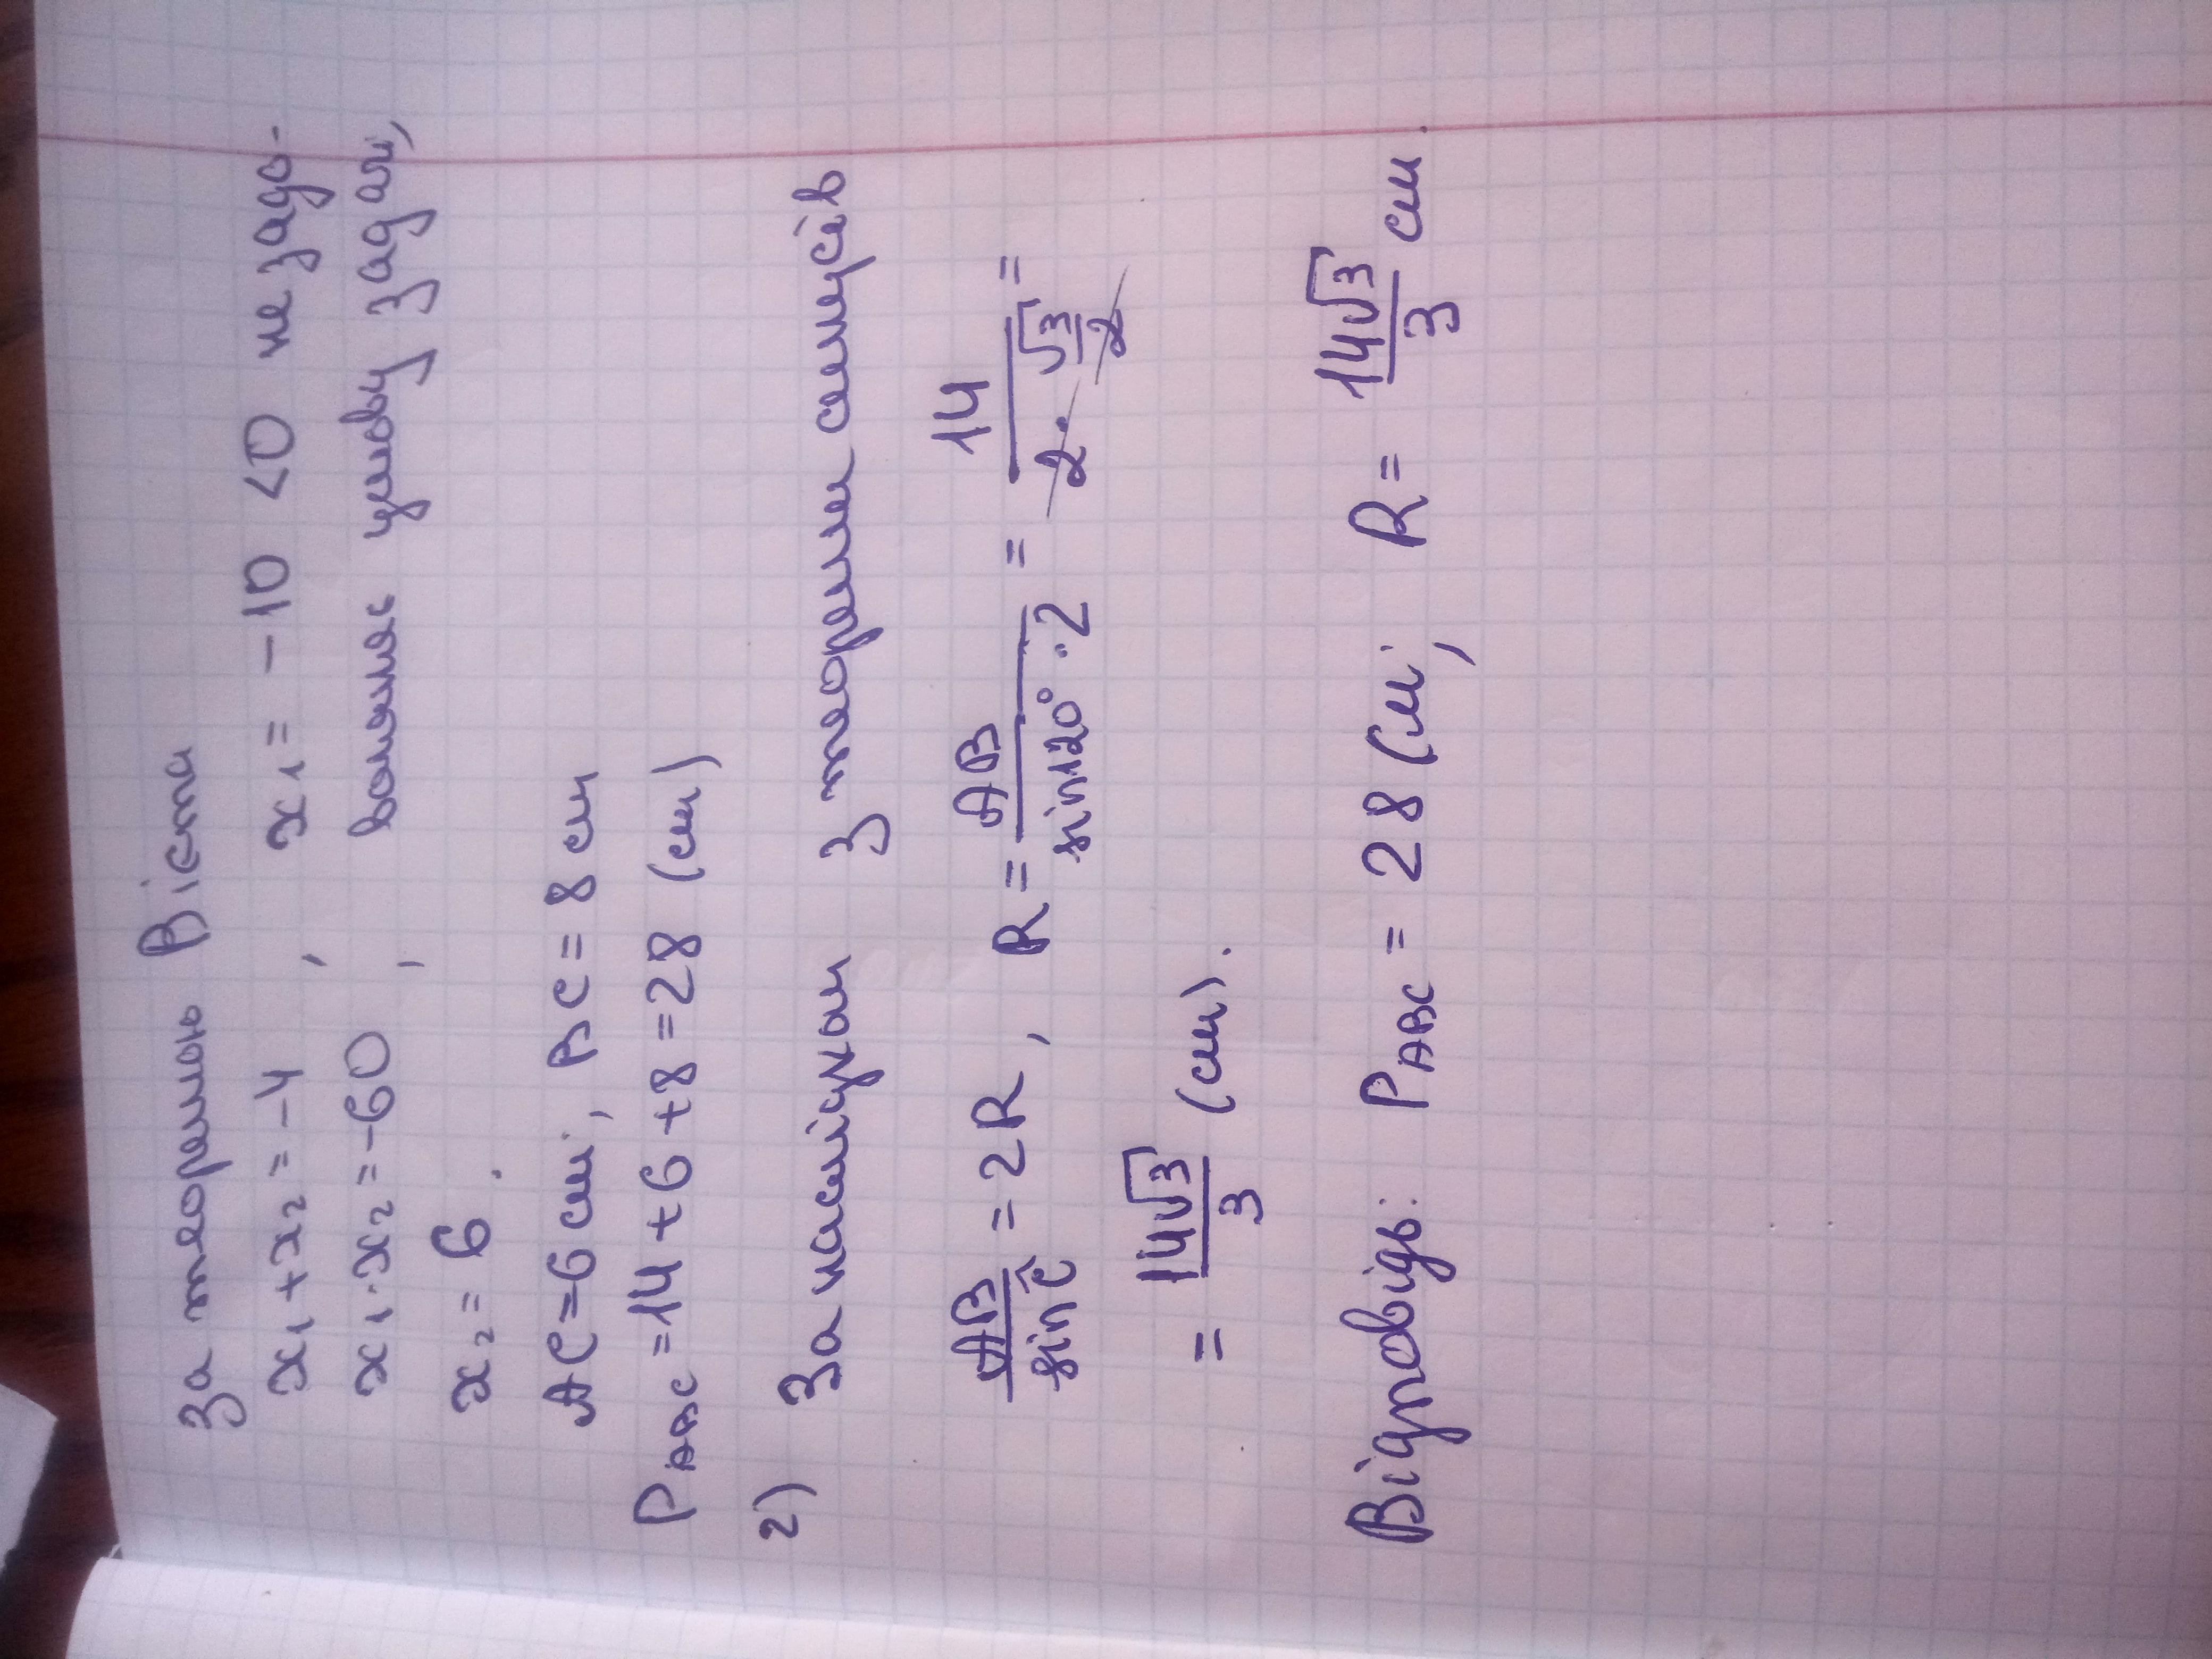 За теоремою Вієта
x₁+x₂=-4, x₁=-10 <0 не задо-
x₁·x₂=-60, вольняє умову задачі,
x₂=6.
AC=6см, BC=8см
P_ABC=14+6+8=28 (см)
2) За наслідком з теореми синусів
AB/sinĈ=2R, R=AB/(sin120°·2)=14/(2·√3/2)=
=14√3/3 (см).
Відповідь: P_ABC=28 см; R=14√3/3 см